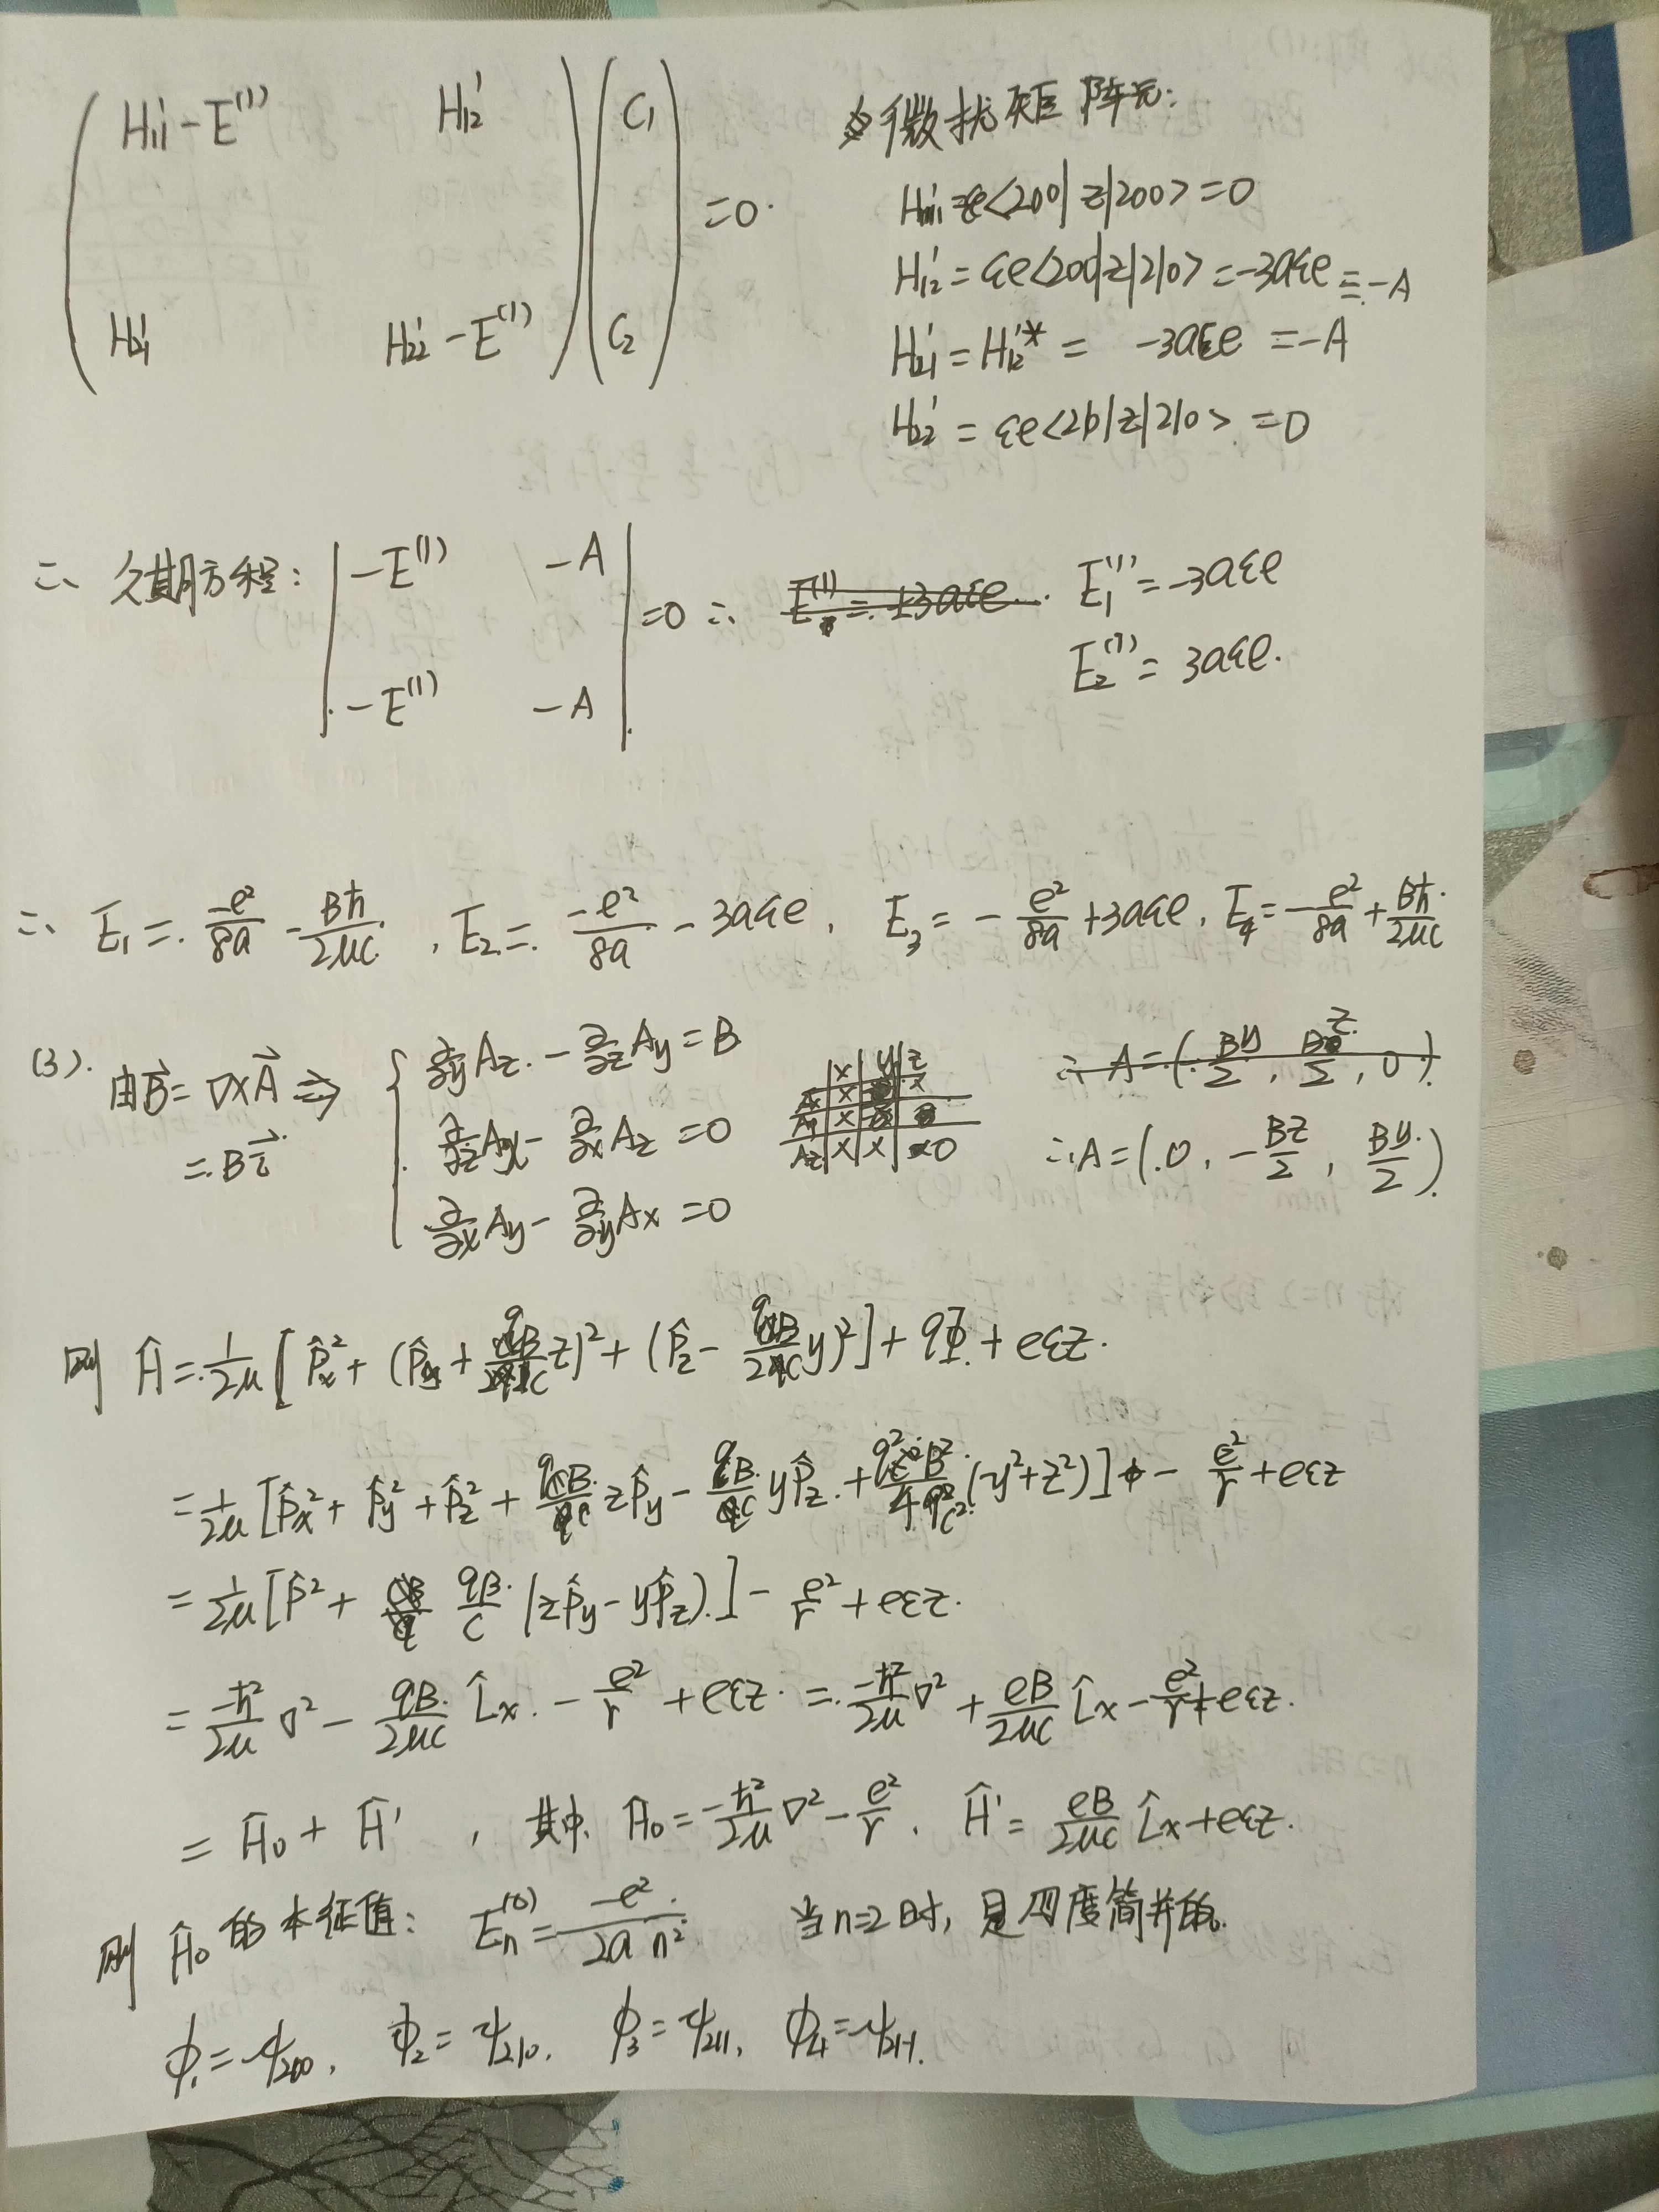 ( H₁₁' - E⁽¹⁾  H₁₂' ) ( C₁ ) = 0.
( H₂₁'  H₂₂' - E⁽¹⁾ ) ( C₂ )
微扰矩阵元:
H₁₁' = εe<200|z|200> = 0
H₁₂' = εe<200|z|210> = -3aεe ≡ -A
H₂₁' = H₁₂'* = -3aεe = -A
H₂₂' = εe<210|z|210> = 0
∴ 久期方程: | -E⁽¹⁾  -A |
| -E⁽¹⁾  -A | = 0 ∴ E⁽¹⁾ = ±3aεe. E₁⁽¹⁾ = -3aεe
E₂⁽¹⁾ = 3aεe.
∴ E₁ = -e²/8a - Bħ/2μc, E₂ = -e²/8a - 3aεe, E₃ = -e²/8a + 3aεe, E₄ = -e²/8a + Bħ/2μc.
(3). 由B⃗ = ∇×A⃗ ⇒ { ∂/∂y Az - ∂/∂z Ay = B
= Bi⃗
∂/∂z Ax - ∂/∂x Az = 0
∂/∂x Ay - ∂/∂y Ax = 0
x y z
Ax x x
Ay x
Az x x 0
∴ A = (By/2, Bz/2, 0)
∴ A = (0, -Bz/2, By/2).
则 Ĥ = 1/2μ [p̂x² + (p̂y + qB/2c z)² + (p̂z - qB/2c y)²] + qΦ + eεz.
= 1/2μ [p̂x² + p̂y² + p̂z² + qB/c zp̂y - qB/c yp̂z + q²B²/4c² (y²+z²)] - e²/r + eεz
= 1/2μ [p̂² + qB/c (zp̂y - yp̂z)] - e²/r + eεz.
= -ħ²/2μ ∇² - qB/2μc L̂x - e²/r + eεz = -ħ²/2μ ∇² + eB/2μc L̂x - e²/r + eεz.
= Ĥ₀ + Ĥ' , 其中 Ĥ₀ = -ħ²/2μ ∇² - e²/r, Ĥ' = eB/2μc L̂x + eεz.
则 Ĥ₀ 的本征值: En⁽⁰⁾ = -e²/2a n² 当n=2时, 是四度简并的.
ϕ₁ = ψ₂₀₀, ϕ₂ = ψ₂₁₀, ϕ₃ = ψ₂₁₁, ϕ₄ = ψ₂₁₋₁.